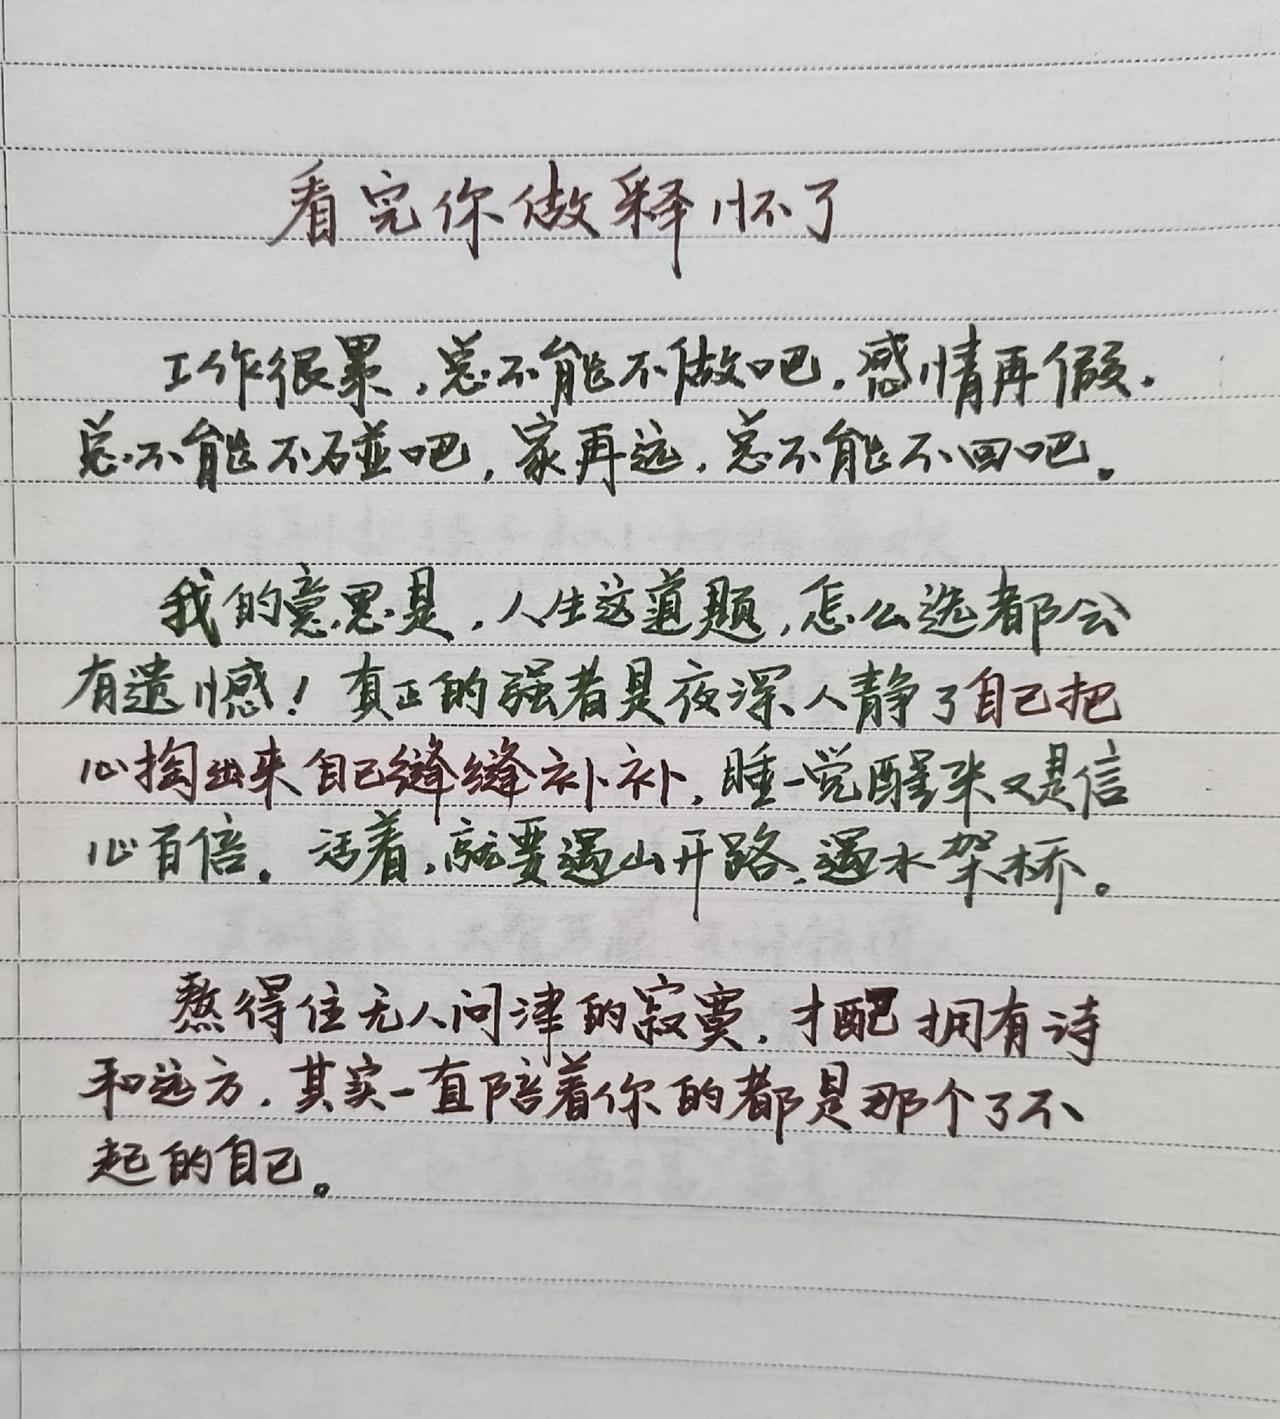 看完你做释怀了
工作很累，总不能不做吧，感情再假，
总不能不碰吧，家再远，总不能不回吧。
我的意思是，人生这道题，怎么选都会
有遗憾！真正的强者是夜深人静了自己把
心掏出来自己缝缝补补，睡一觉醒来又是信
心百倍。活着，就要遇山开路，遇水架桥。
熬得住无人问津的寂寞，才配拥有诗
和远方，其实一直陪着你的都是那个了不
起的自己。